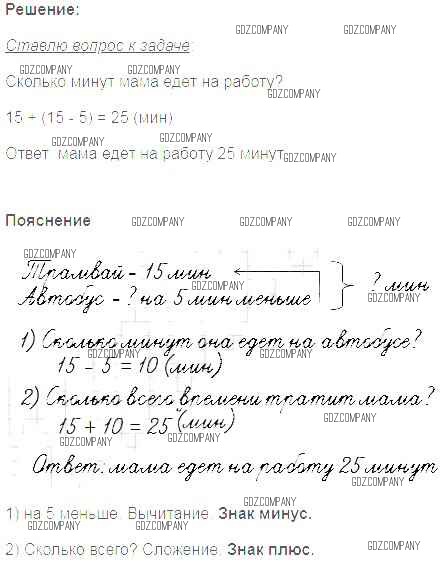 Решение:
GDZCOMPANY GDZCOMPANY
Ставлю вопрос к задаче:
GDZCOMPANY GDZCOMPANY
Сколько минут мама едет на работу?
GDZCOMPANY
15 + (15 - 5) = 25 (мин)
GDZCOMPANY GDZCOMPANY
Ответ: мама едет на работу 25 минут.
GDZCOMPANY
Пояснение
GDZCOMPANY GDZCOMPANY GDZCOMPANY
GDZCOMPANY
Трамвай - 15 мин
GDZCOMPANY
Автобус - ? на 5 мин меньше
? мин
GDZCOMPANY
1) Сколько минут она едет на автобусе?
GDZCOMPANY GDZCOMPANY
15 - 5 = 10 (мин)
2) Сколько всего времени тратит мама?
GDZCOMPANY
15 + 10 = 25 (мин)
GDZCOMPANY GDZCOMPANY
Ответ: мама едет на работу 25 минут
GDZCOMPANY
GDZCOMPANY
1) на 5 меньше. Вычитание. Знак минус.
GDZCOMPANY GDZCOMPANY
2) Сколько всего? Сложение. Знак плюс.
GDZCOMPANY